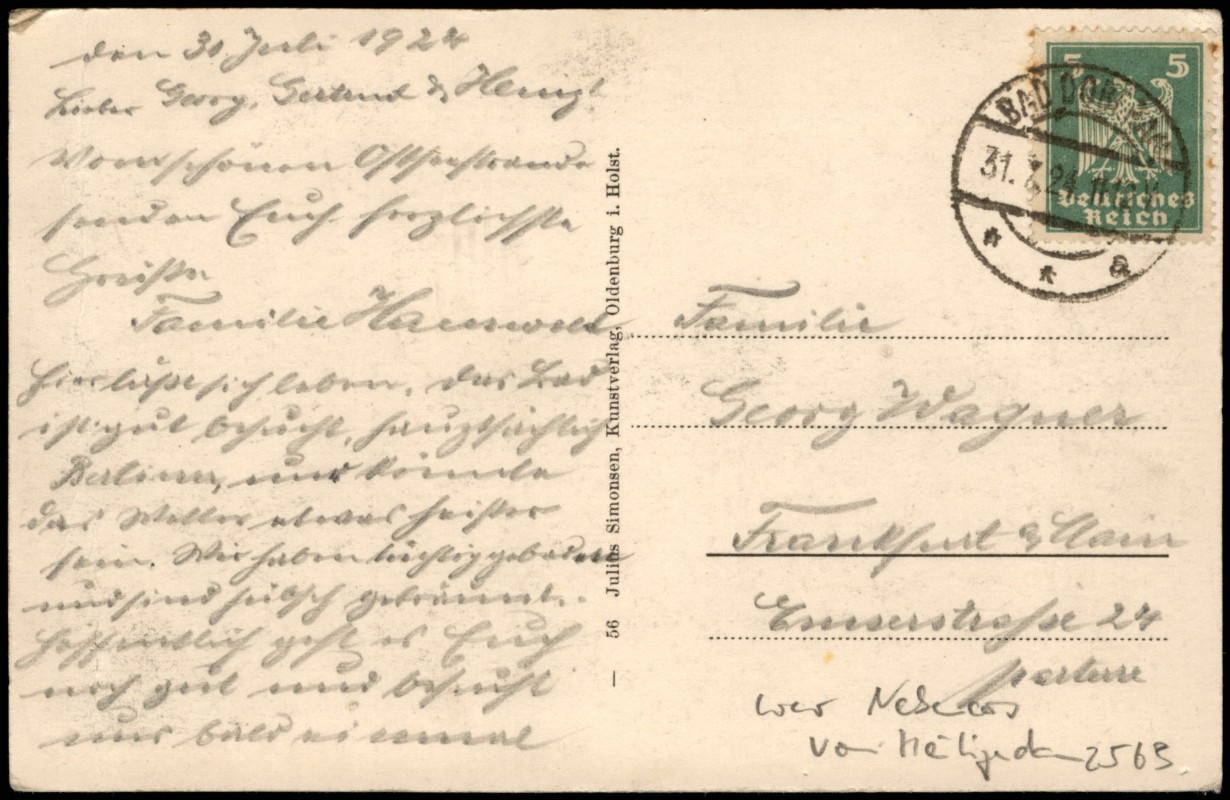 den 30 Juli 1924
Lieber Georg, Gertrud & Heinz!
Vom schönen Ostseestrande
senden Euch herzlichste
Grüße
Familie
Hier läßt sich leben, das Bad
ist gut besucht, hauptsächlich
Berliner, und könnte
das Wetter etwas heißer
sein. Wir haben tüchtig gebadet
und sind hübsch gebräunt.
Hoffentlich geht es Euch
noch gut und besucht
uns bald einmal
— 56 Julius Simonsen, Kunstverlag, Oldenburg i. Holst.
5 5
Deutsches
Reich
BAD DOBERAN
31.7.24
* * a
Familie
Georg Wagner
Frankfurt a/Main
Emserstraße 24
parterre
von Heiligendamm 2563